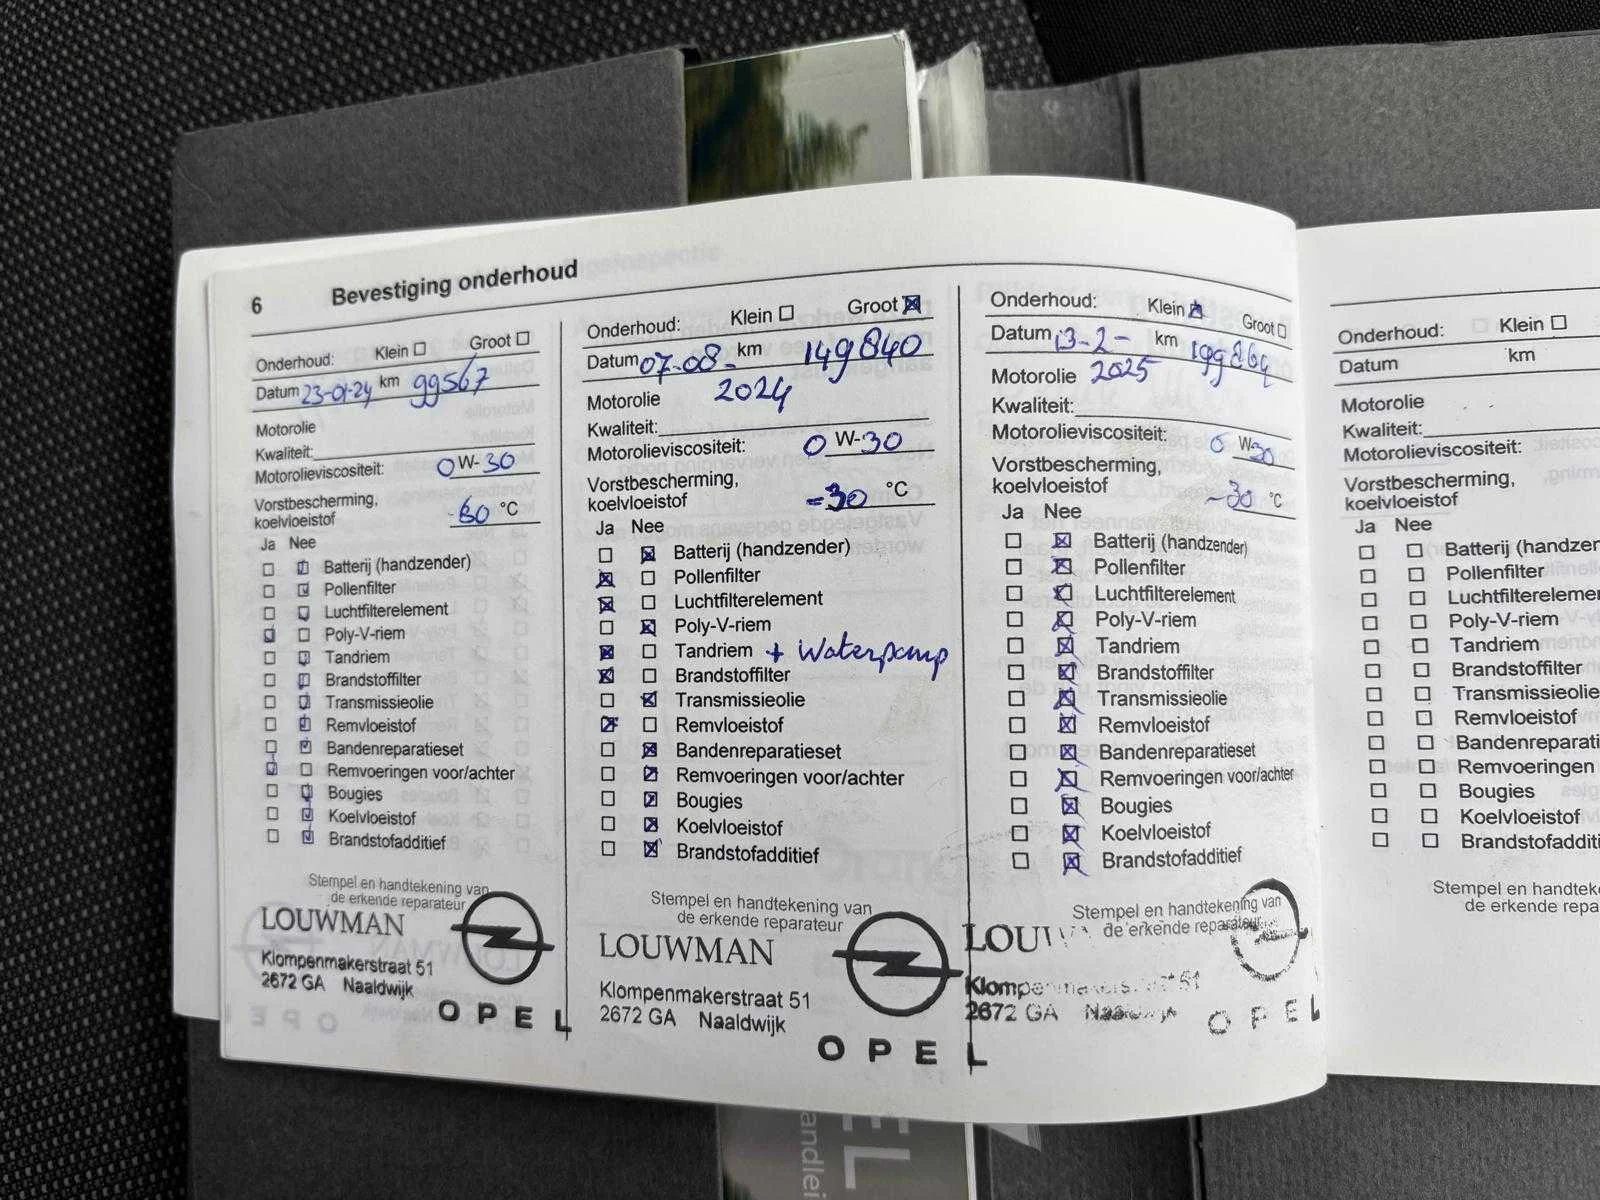 6 Bevestiging onderhoud
Onderhoud: Klein Groot
Datum 23-01-24 km 99567
Motorolie
Kwaliteit:
Motorolieviscositeit: 0 W-30
Vorstbescherming,
koelvloeistof °C
Ja Nee
Batterij (handzender)
Pollenfilter
Luchtfilterelement
Poly-V-riem
Tandriem
Brandstoffilter
Transmissieolie
Remvloeistof
Bandenreparatieset
Remvoeringen voor/achter
Bougies
Koelvloeistof
Brandstofadditief
Stempel en handtekening van
de erkende reparateur
LOUWMAN
Klompenmakerstraat 51
2672 GA Naaldwijk
OPEL
Onderhoud: Klein Groot
Datum 07-08- km 149840
2024
Motorolie
Kwaliteit:
Motorolieviscositeit: 0 W-30
Vorstbescherming,
koelvloeistof -30 °C
Ja Nee
Batterij (handzender)
Pollenfilter
Luchtfilterelement
Poly-V-riem
Tandriem + Waterpomp
Brandstoffilter
Transmissieolie
Remvloeistof
Bandenreparatieset
Remvoeringen voor/achter
Bougies
Koelvloeistof
Brandstofadditief
Stempel en handtekening van
de erkende reparateur
LOUWMAN
Klompenmakerstraat 51
2672 GA Naaldwijk
OPEL
Onderhoud: Klein Groot
Datum 13-2- km
Motorolie 2025
Kwaliteit:
Motorolieviscositeit: 0 W-30
Vorstbescherming,
koelvloeistof -30 °C
Ja Nee
Batterij (handzender)
Pollenfilter
Luchtfilterelement
Poly-V-riem
Tandriem
Brandstoffilter
Transmissieolie
Remvloeistof
Bandenreparatieset
Remvoeringen voor/achter
Bougies
Koelvloeistof
Brandstofadditief
Stempel en handtekening van
de erkende reparateur
2672 GA
OPEL
Onderhoud: Klein
Datum km
Motorolie
Kwaliteit:
Motorolieviscositeit:
Vorstbescherming,
koelvloeistof
Ja Nee
Batterij (handzen
Pollenfilter
Luchtfilterelemen
Poly-V-riem
Tandriem
Brandstoffilter
Transmissieolie
Remvloeistof
Bandenreparati
Remvoeringen
Bougies
Koelvloeistof
Brandstofadditi
Stempel en handteke
de erkende repa